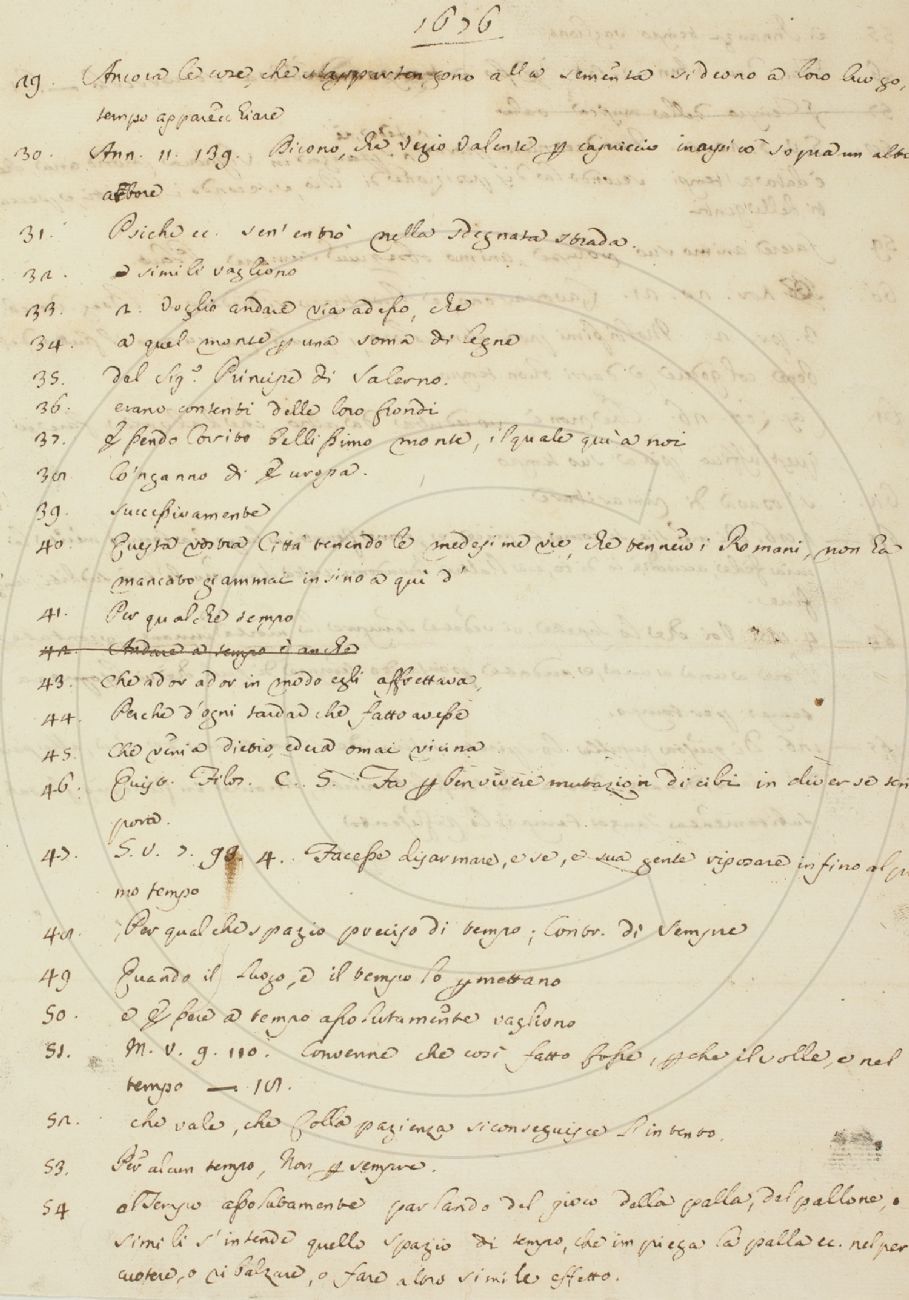 1676
29. Ancora le cose, che s'appartengono alla sementa si deono a loro luogo,
tempo apparecchiare
30. Ann. 11. 139. Dicono, che Vezio Valente p capriccio inarpicò sopra un alto
arbore
31. Psiche ec. sen' entrò nella sdegnata strada.
32. e simili vagliono
33. 2. Voglio andare via adesso, che
34. a quel monte p una soma di legne
35. del Sig.e Principe di Salerno.
36. erano contenti delle loro frondi
37. Essendo Corsito bellissimo monte, il quale qui a noi
38. lo 'nganno di Europa.
39. successivamente
40. Questa vostra Città tenendo le medesime vie, che tennero i Romani, non ha
mancato giammai insino a quì d'
41. Per qualche tempo
42. Andare a tempo è anche
43. Che ad or ad or in modo egli affrettava,
44. Perche d'ogni tardar che fatto avesse
45. Che venia dietro, ed era omai vicina
46. Quist. Filos. C. S. Fa p ben vivere mutazion di cibi in diverse tem
pora.
47. S. V. 7. 99. 4. Facesse disarmare, e se, e sua gente riposare infino al pri
mo tempo
48. Per qualche spazio preciso di tempo; Contr. di Sempre
49 Quando il luogo, e il tempo lo pmettano
50. e Essere a tempo assolutamente vagliono
51. M. V. 9. 110. Convenne che così fatto fosse, pche il volle, e nel
tempo — 18.
52. che vale, che colla pazienza si conseguisce l'intento.
53. Per alcun tempo, Non p sempre.
54 e Tempo assolutamente parlando del gioco della palla, del pallone, e
simili s'intende quello spazio di tempo, che impiega la palla ec. nel per
cuotere, o ribalzare, o fare altro simile effetto.